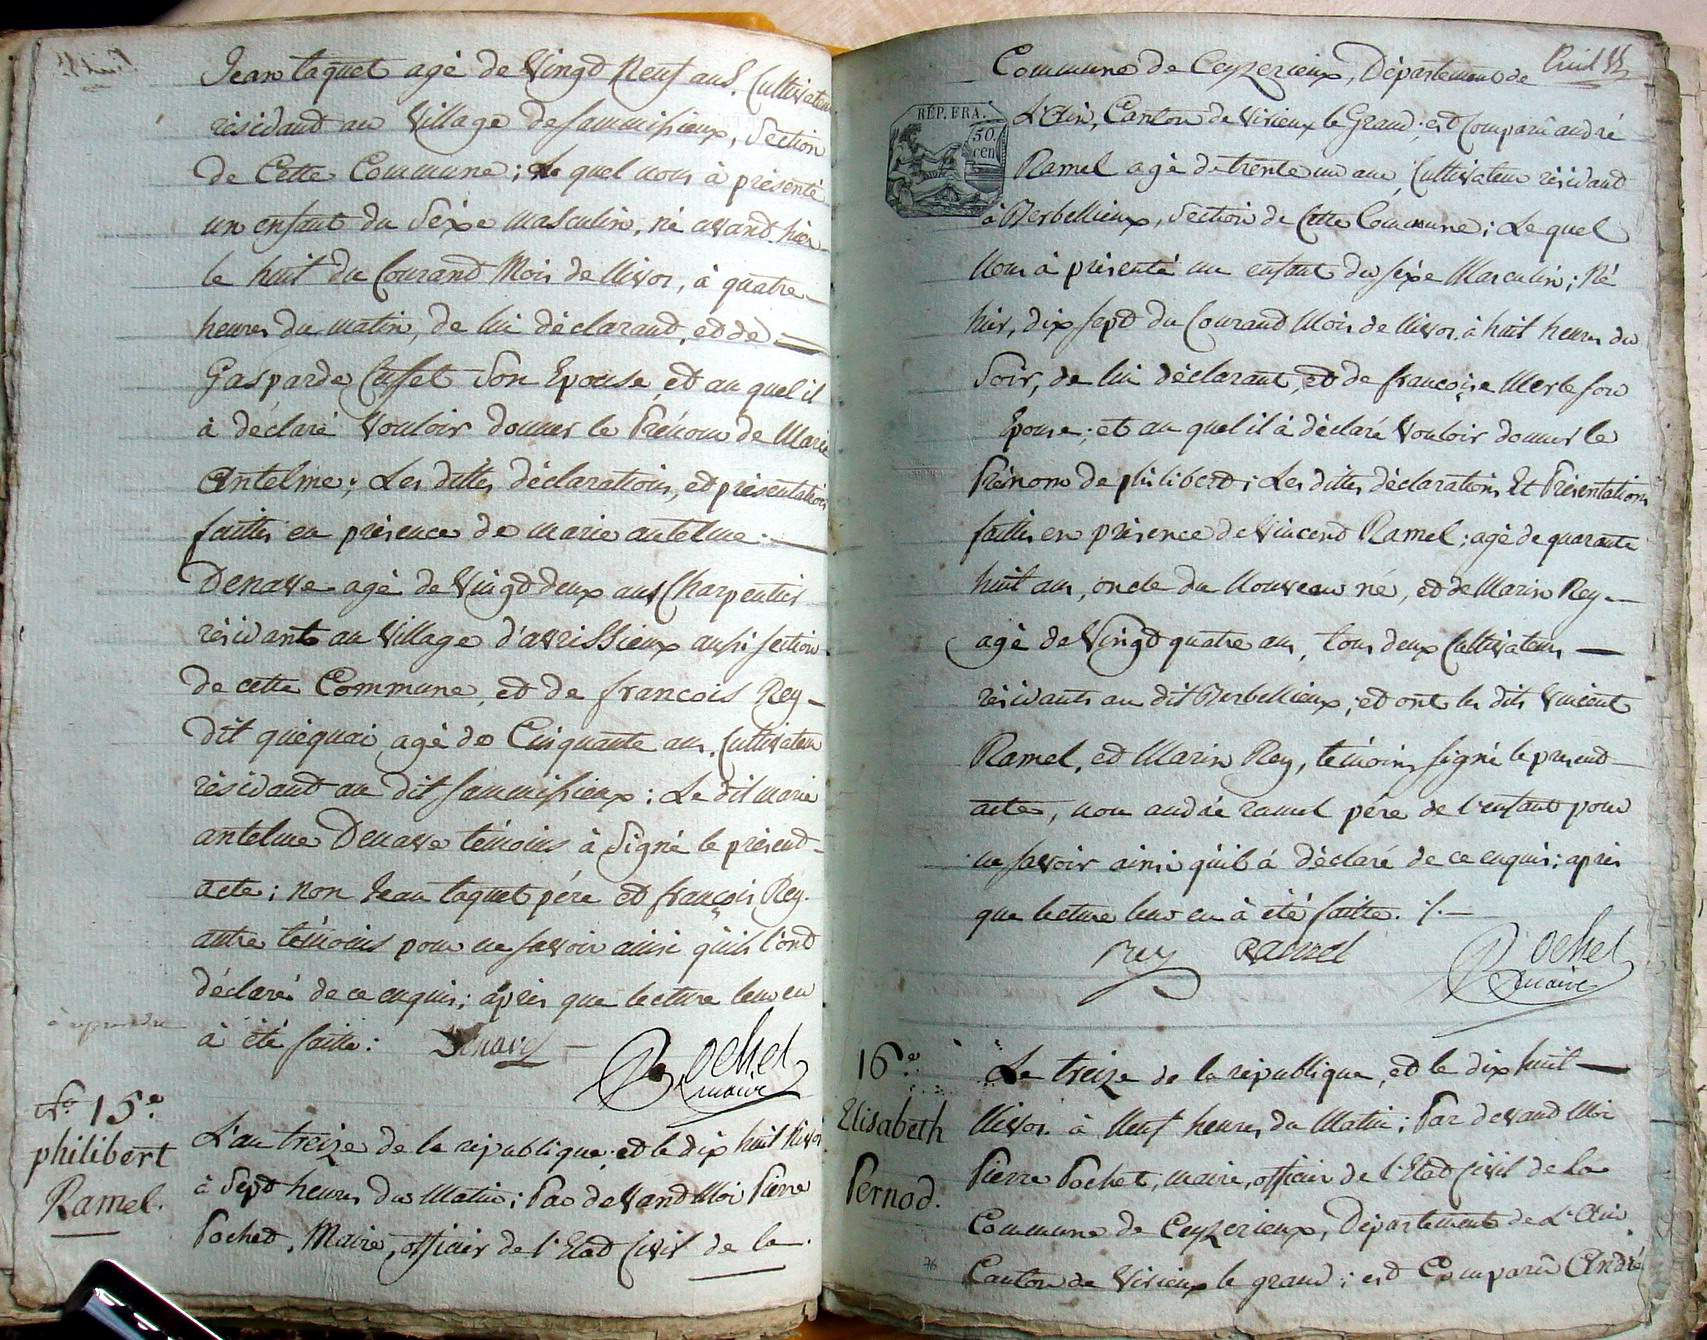 Jean taquet agé de Vingd Neuf ans. Cultivateur
residand au Village de sammissieux, Section
de Cette Commune; Le quel nous à présenté
un enfant du Séxe masculin, né avand hier
le huit du Courand Mois de Nivos, à quatre
heures du matin, de lui déclarand, ed de
Gasparde Cusset Son Epouse, et au quel il
à déclaré Vouloir donner le Prénom de Marie
Antelme; Les dittes déclarations, ed présentations
faittes en présence de marie antelme
Denave agé de Vingd deux ans Charpentier
résidant au Village d'avrissieux aussi section
de cette Commune, ed de francois Rey
dit quéquai agé de Cinquante ans. Cultivateur
résidand au dit sammissieux; Le dit marie
antelme Denave témoins à Signé le présend
acte; non Jean taquet pére ed françois Rey
autre témoins pour ne savoir ainsi qu'ils l'ond
déclaré de ce enquis; aprés que lecture leur en
à été faitte:
Denave
Pochet
maire
à reprendre
No 15e
philibert
Ramel.
L'an treize de la république, ed le dix huit Nivos
à Sept heures du Matin; Par devand Moi Pierre
Pochet, Maire, officier de l'Etad Civil de la
Commune de Ceyzerieux, Département de
L'Ain, Canton de Virieux le Grand. est Comparû andré
RÉP. FRA.
50
cen
Ramel agé de trente un ans, Cultivateur résidand
à Berbellieux, Section de Cette Commune; Le quel
Nous à présenté un enfant du séxe Masculin; Né
hier, dix sept du Courand Mois de Nivos à huit heures du
Soir, de lui déclarant, ed de françoise Merle son
Epouse; et au quel il à déclaré Vouloir donner le
Prénom de philiberd; Les dittes déclarations Et Présentations
faittes en présence de Vincend Ramel; agé de quarante
huit ans, oncle du Nouveau né, ed de Marin Rey
agé de Vingd quatre ans, tous deux Cultivateurs
résidants au dit Berbellieux; ed ont les dits Vincent
Ramel, ed Marin Rey, témoins signé le présend
acte, non andré ramel pére de l'enfant pour
ne savoir ainsi qu'il à déclaré de ce enquis; aprés
que lecture leur en à été faitte. ./.
rey Ramel
Pochet
maire
16e
Elisabeth
Pernod.
76
Le treize de la république, ed le dix huit
Nivos à Neuf heures du Matin; Par devand Moi
Pierre Pochet, maire, officier de l'Etad Civil de la
Commune de Ceyzerieux, Département de L'Ain
Canton de Virieux le grand; est Comparû André